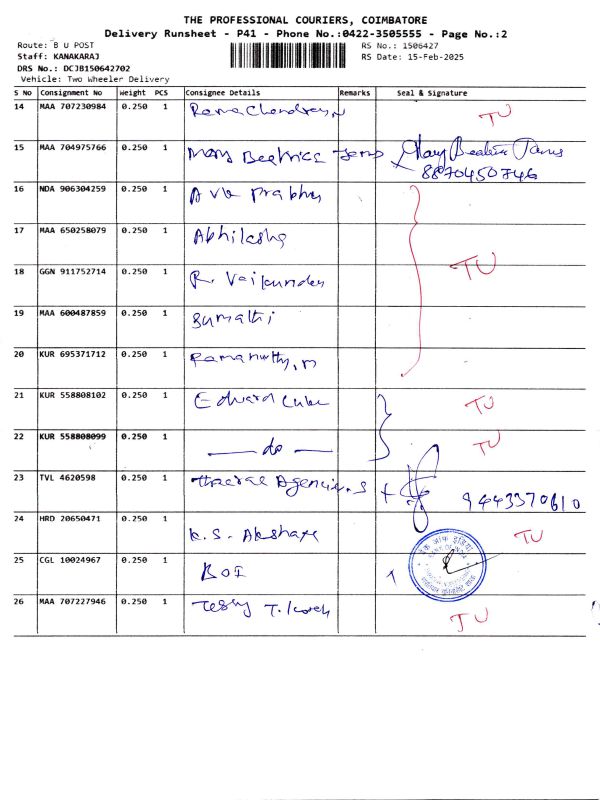 THE PROFESSIONAL COURIERS, COIMBATORE
Delivery Runsheet - P41 - Phone No.:0422-3505555 - Page No.:2
Route: B U POST
RS No.: 1506427
Staff: KANAKARAJ
RS Date: 15-Feb-2025
DRS No.: DCJB150642702
Vehicle: Two Wheeler Delivery
S No Consignment No Weight PCS Consignee Details Remarks Seal & Signature
14 MAA 707230984 0.250 1 Rama Chandran N TU
15 MAA 704975766 0.250 1 Mary Beatrice Mary Beatrice
8870450746
16 NDA 906304259 0.250 1 A V R Prabhu
17 MAA 650258079 0.250 1 Abhilasha
18 GGN 911752714 0.250 1 R. TU
19 MAA 600487859 0.250 1 Sumathi
20 KUR 695371712 0.250 1
21 KUR 558808102 0.250 1 Edward TU
22 KUR 558808099 0.250 1 do TU
23 TVL 4620598 0.250 1 Agencies 9443370610
24 HRD 20650471 0.250 1 K.S. Akshaya TU
25 CGL 10024967 0.250 1 BOI
26 MAA 707227946 0.250 1 T. TU